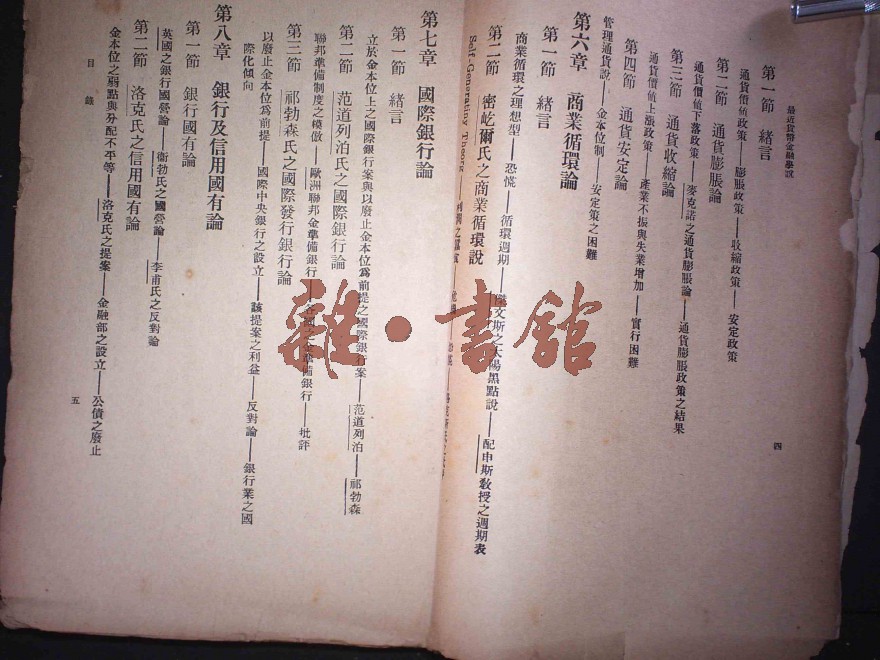 最近貨幣金融學說
第一節　緒言
通貨價値政策——膨脹政策——收縮政策——安定政策
第二節　通貨膨脹論
通貨價値下落政策——麥克諾之通貨膨脹論——通貨膨脹政策之結果
第三節　通貨收縮論
通貨價値上漲政策——產業不振與失業增加——實行困難
第四節　通貨安定論
管理通貨說——金本位制——安定策之困難
第六章　商業循環論
第一節　緒言
商業循環之理想型——恐慌——循環週期——傑文斯之太陽黑點說——配申斯敎授之週期表
第二節　密屹爾氏之商業循環說
Self-Generating Theory
四
第七章　國際銀行論
第一節　緒言
立於金本位上之國際銀行案與以廢止金本位爲前提之國際銀行案——范道列泊——祁勃森
第二節　范道列泊氏之國際銀行論
聯邦準備制度之模倣——歐洲聯邦金準備銀行——各國之金準備銀行——批評
第三節　祁勃森氏之國際發行銀行論
以廢止金本位爲前提——國際中央銀行之設立——該提案之利益——反對論——銀行業之國
際化傾向
第八章　銀行及信用國有論
第一節　銀行國有論
英國之銀行國營論——衞勃氏之國營論——李甫氏之反對論
第二節　洛克氏之信用國有論
金本位之弱點與分配不平等——洛克氏之提案——金融部之設立——公債之廢止
目錄
五
雜·書館